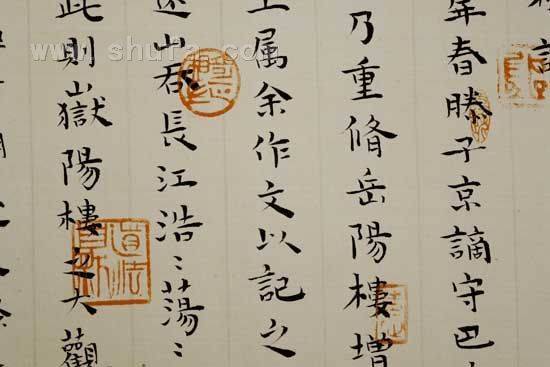 年春滕子京謫守巴
乃重脩岳陽樓增
上属余作文以記之
遠山吞長江浩〻蕩〻
此則嶽陽樓之大觀
道法自然
www.shufa.com